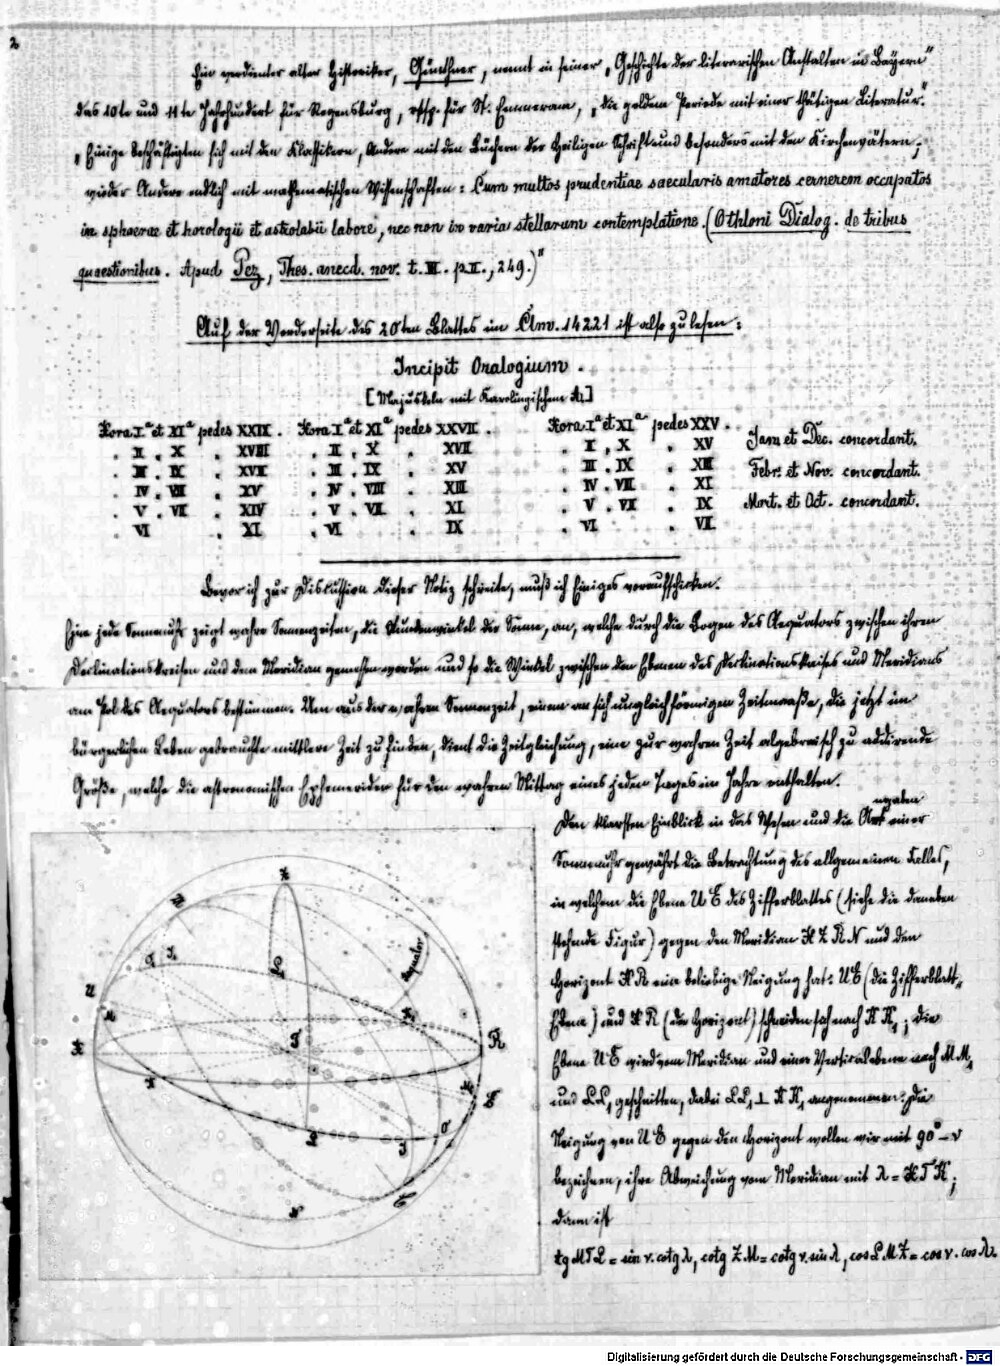 2
Ein verdienter alter Historiker, Günthner, nennt in seiner „Geschichte der literarischen Anstalten in Bayern"
das 10te und 11te Jahrhundert für Regensburg, resp. für St. Emmeram, „die goldene Periode mit einer thätigen Literatur".
„Einige beschäftigten sich mit den Klassikern, Andere mit den Büchern der Heiligen Schrift und besonders mit den Kirchenvätern;
wieder Andere endlich mit mathematischen Wissenschaften: Cum multos prudentiae saecularis amatores cernerem occupatos
in sphaerae et horologii et astrolabii labore, nec non in varia stellarum contemplatione. (Othloni Dialog. de tribus
quaestionibus. Apud Pez, Thes. anecd. nov. t. III. p. II., 249.)"
Auf der Vorderseite des 20ten Blattes im Clm. 14221 ist also zu lesen:
Incipit Oralogium.
[Majuskeln mit Karolingischem A.]
Hora Iª et XIª pedes XXIX. Hora Iª et XIª pedes XXVII. Hora Iª et XIª pedes XXV. Jan. et Dec. concordant.
„ II „ X „ XVIII „ II „ X „ XVII „ II „ X „ XV
„ III „ IX „ XVII „ III „ IX „ XV „ III „ IX „ XIII Febr. et Nov. concordant.
„ IV „ VIII „ XV „ IV „ VIII „ XIII „ IV „ VIII „ XI
„ V „ VII „ XIV „ V „ VII „ XI „ V „ VII „ IX Mart. et Oct. concordant.
„ VI „ XI „ VI „ IX „ VI „ VII
Bevor ich zur Diskussion dieser Notiz schreite, muß ich Einiges vorausschicken.
Eine jede Sonnenuhr zeigt wahre Sonnenzeiten, die Stundenwinkel der Sonne, an, welche durch die Bogen des Aequators zwischen ihren
Declinationskreisen und dem Meridian gemessen werden und so die Winkel zwischen den Ebenen des Declinationskreises und Meridians
am Pol des Aequators bestimmen. Um aus der wahren Sonnenzeit, einem an sich ungleichförmigen Zeitmaaße, die jetzt im
bürgerlichen Leben gebrauchte mittlere Zeit zu finden, dient die Zeitgleichung, eine zur wahren Zeit algebraisch zu addirende
Größe, welche die astronomischen Ephemeriden für den wahren Mittag eines jeden Tages im Jahre enthalten.
Den klarsten Einblick in das Wesen und die Art einer
Sonnenuhr gewährt die Betrachtung des allgemeinen Falles,
in welchem die Ebene U E des Zifferblattes (siehe die daneben
stehende Figur) gegen den Meridian H Z R N und den
Horizont H R eine beliebige Neigung hat: U E (die Zifferblatt-
Ebene) und H R (der Horizont) schneiden sich nach K K₁; die
Ebene U E wird vom Meridian und einer Verticalebene nach M M₁
und L L₁ geschnitten, dabei L L₁ ⊥ K K₁ angenommen. Die
Neigung von U E gegen den Horizont wollen wir mit 90° – ν
bezeichnen, ihre Abweichung vom Meridian mit λ = H T K;
dann ist
tg M T L = sin ν. cotg λ, cotg Z M = cotg ν. sin λ, cos L M Z = cos ν. cos λ
Z
U
M
H
K
L
T
Aequator
R
E
N
Digitalisierung gefördert durch die Deutsche Forschungsgemeinschaft - DFG